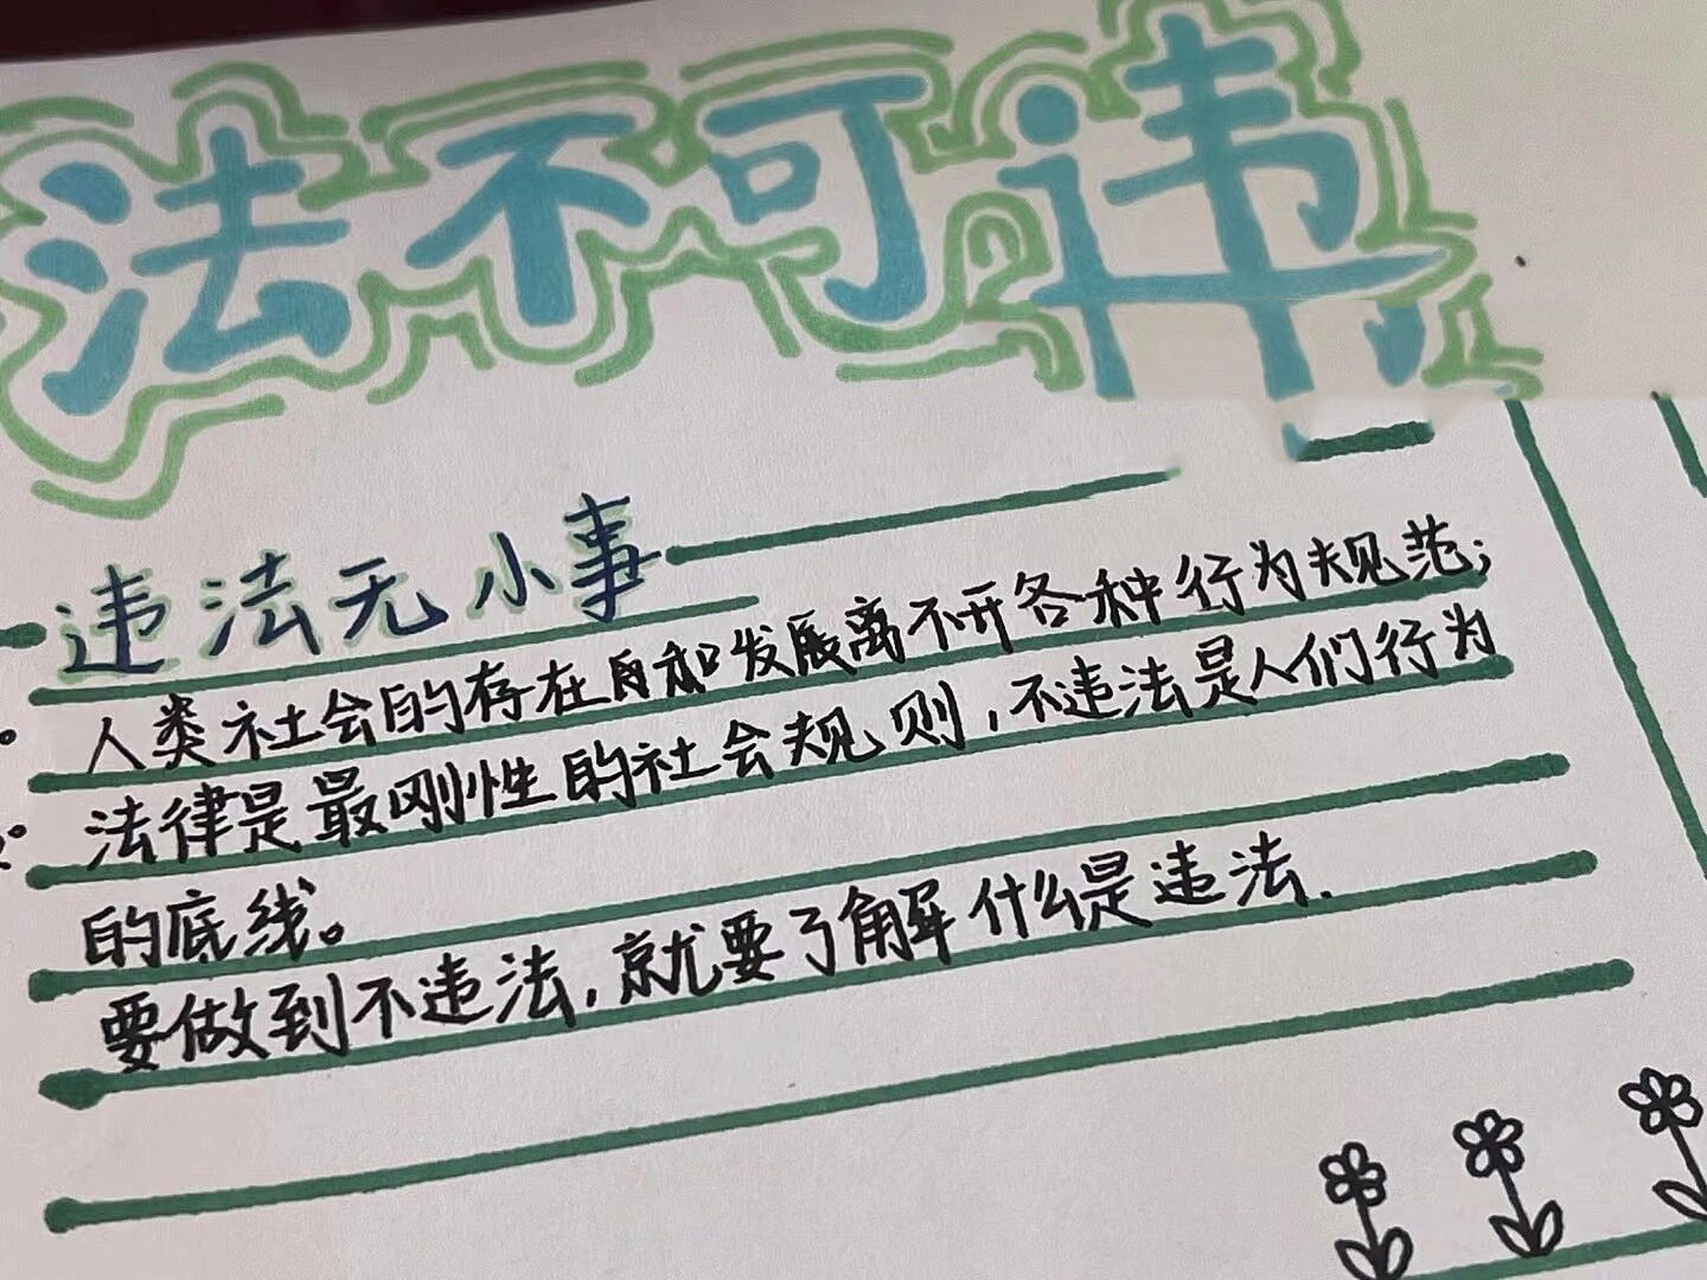 法不可违
违法无小事
人类社会的存在和发展离不开各种行为规范;
法律是最刚性的社会规则,不违法是人们行为
的底线。
要做到不违法,就要了解什么是违法.